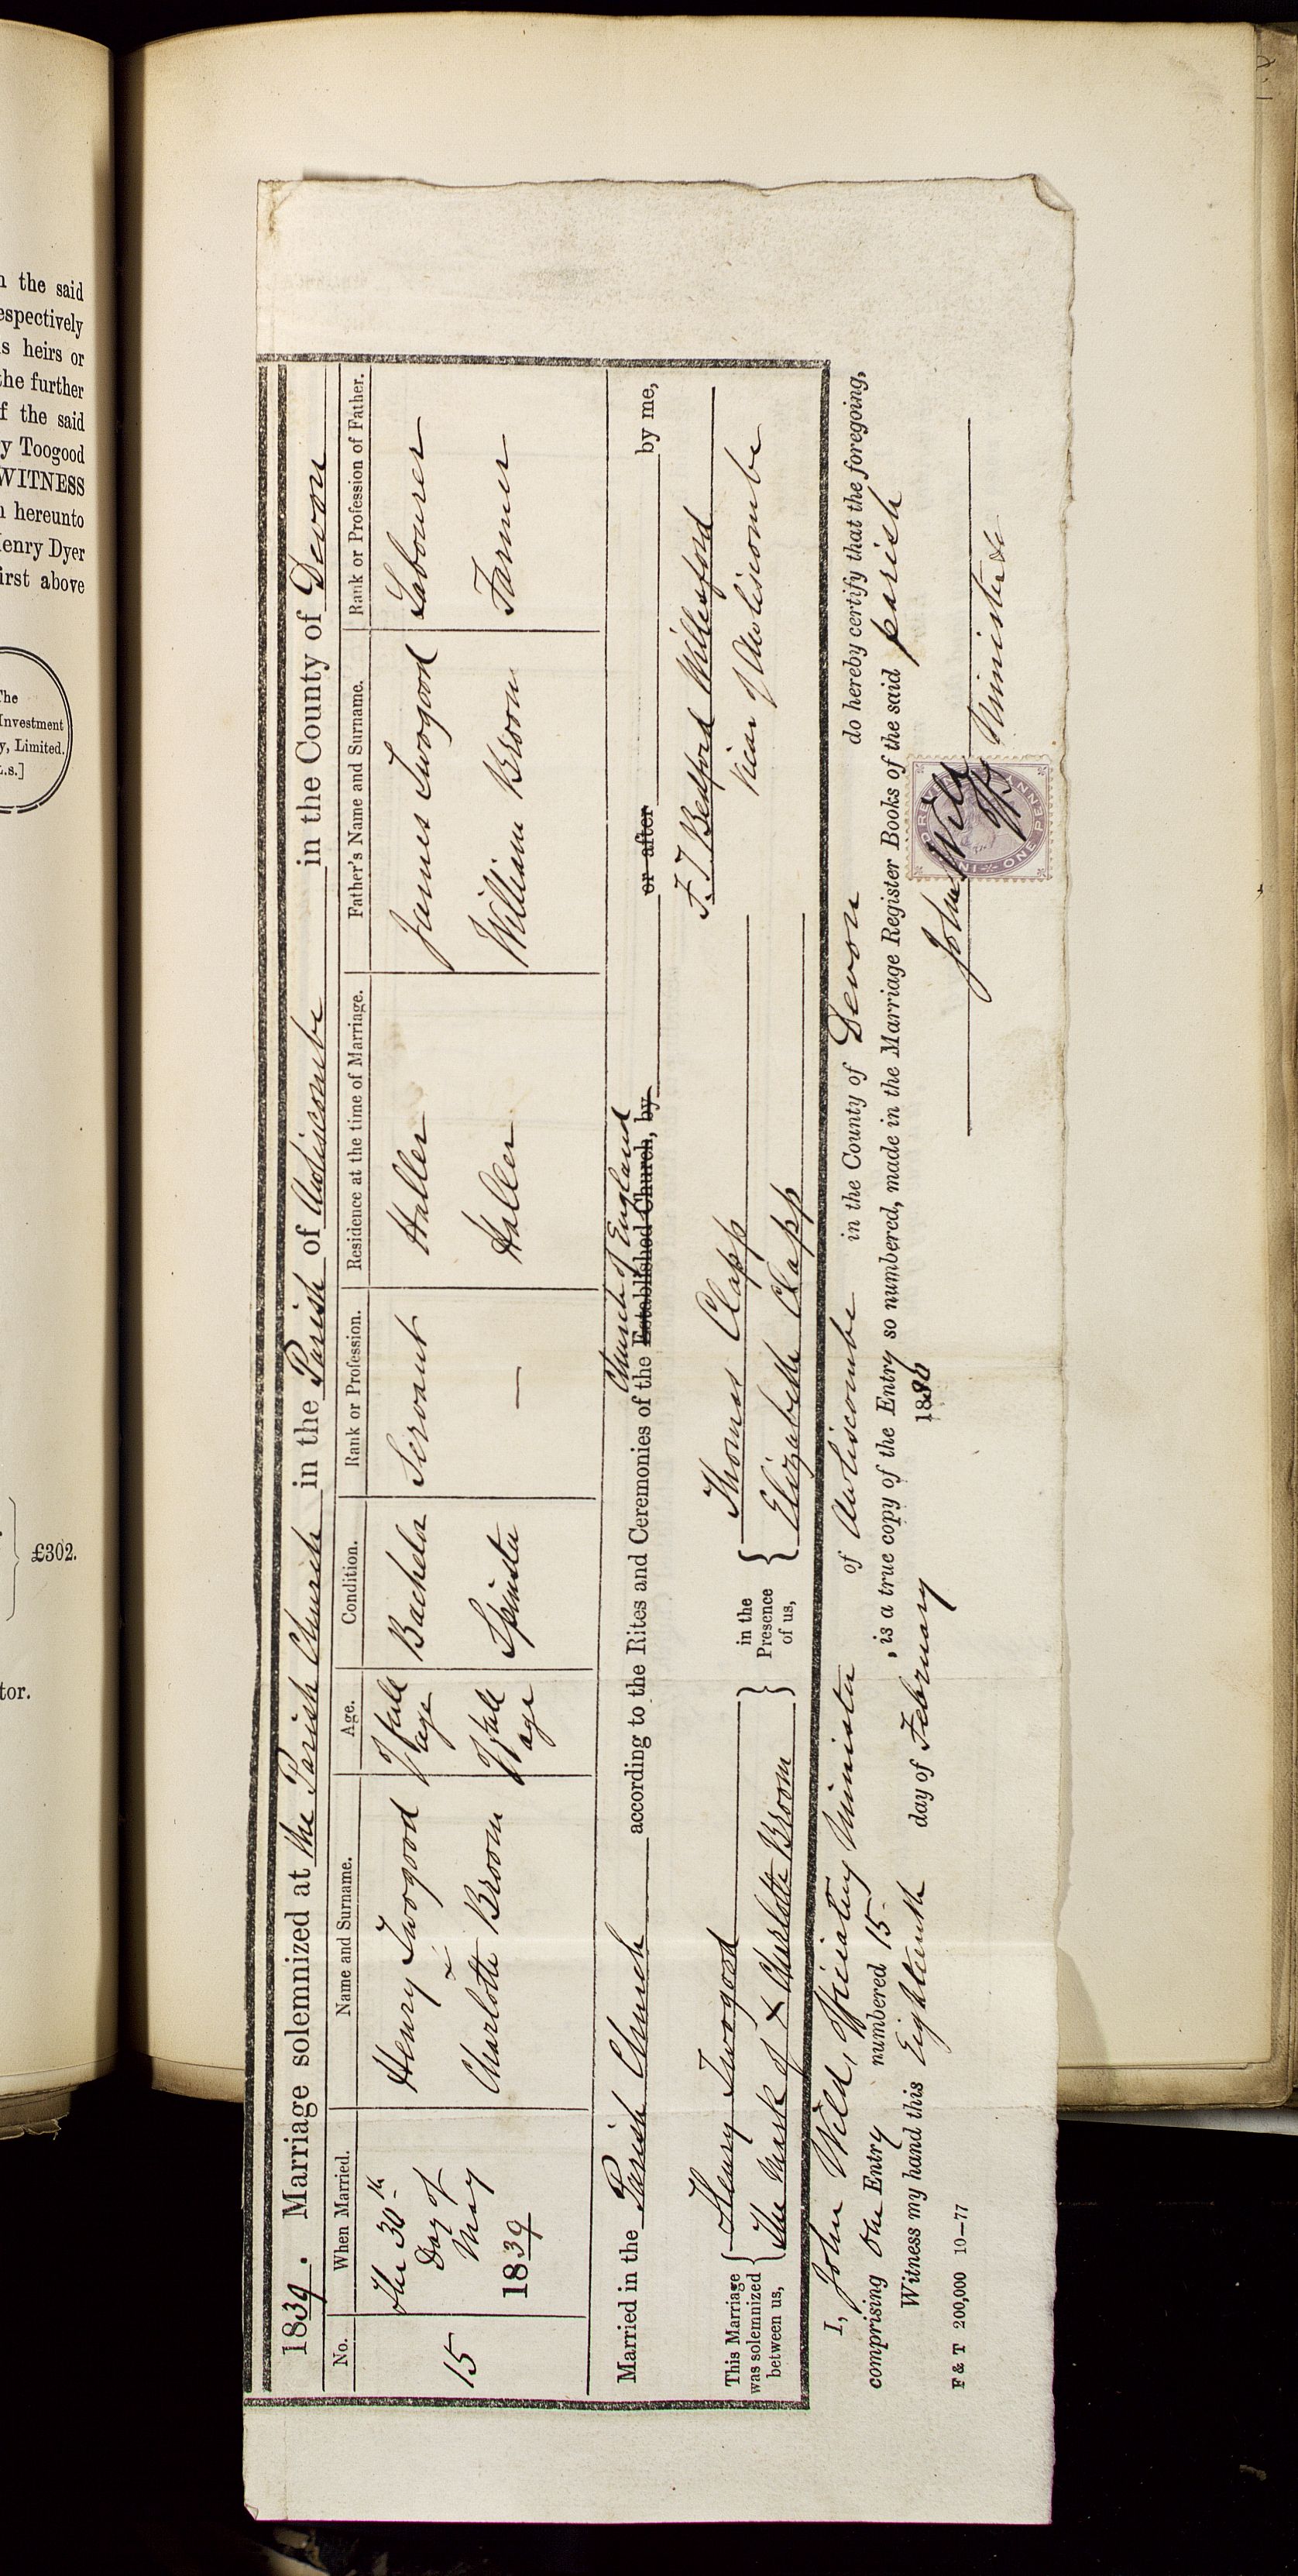 n the said
espectively
s heirs or
the further
f the said
y Toogood
WITNESS
n hereunto
enry Dyer
irst above
The
Investment
y, Limited.
L.S.]
£302.
tor.
1839. Marriage solemnized at the Parish Church in the Parish of Awliscombe in the County of Devon
No. When Married. Name and Surname. Age. Condition. Rank or Profession. Residence at the time of Marriage. Father's Name and Surname. Rank or Profession of Father.
15 the 30th Day of May 1839
Henry Twogood Of full age Bachelor Servant Haller James Twogood Labourer
Charlotte Broom Of full age Spinster — Haller William Broom Farmer
Church of England
Married in the Parish Church according to the Rites and Ceremonies of the Established Church, by or after by me,
F. J. Bedford Willesford
Vicar of Awliscombe
This Marriage was solemnized between us, { Henry Twogood
The Mark of X Charlotte Broom } in the Presence of us, { Thomas Clapp
Elizabeth Clapp
I, John Wild, Officiating Minister of Awliscombe in the County of Devon do hereby certify that the foregoing,
comprising One Entry numbered 15, is a true copy of the Entry so numbered, made in the Marriage Register Books of the said parish
Witness my hand this Eighteenth day of February 1886
John Wild
Off Minister
INLAND REVENUE ONE PENNY
F & T 200,000 10—77